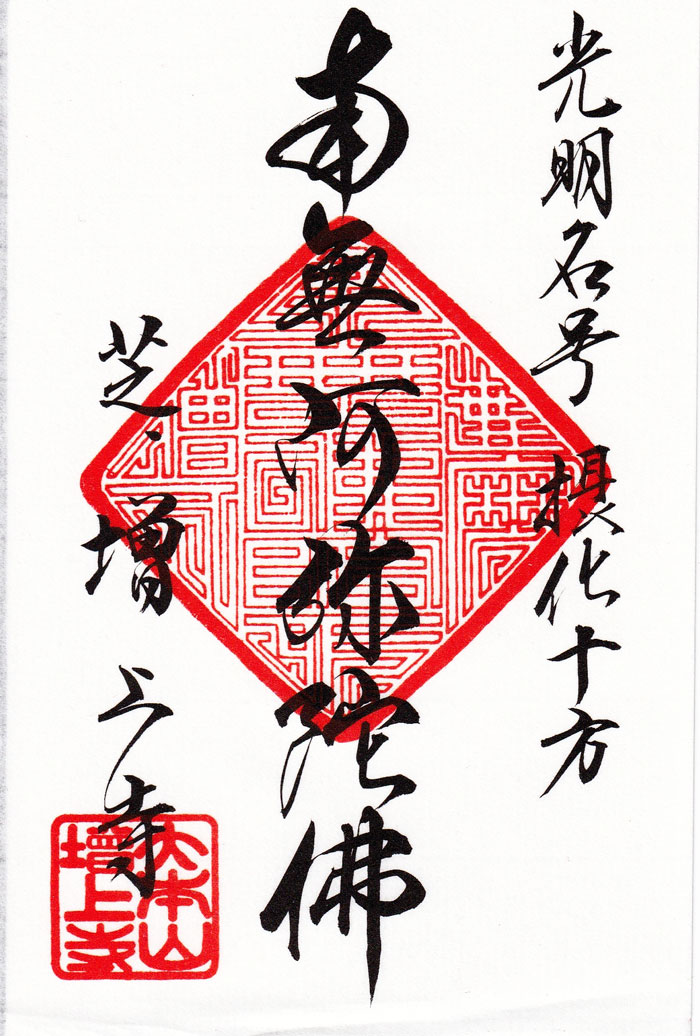 光明名号 摂化十方
南無阿弥陀佛
芝、増上寺
大本山
増上寺